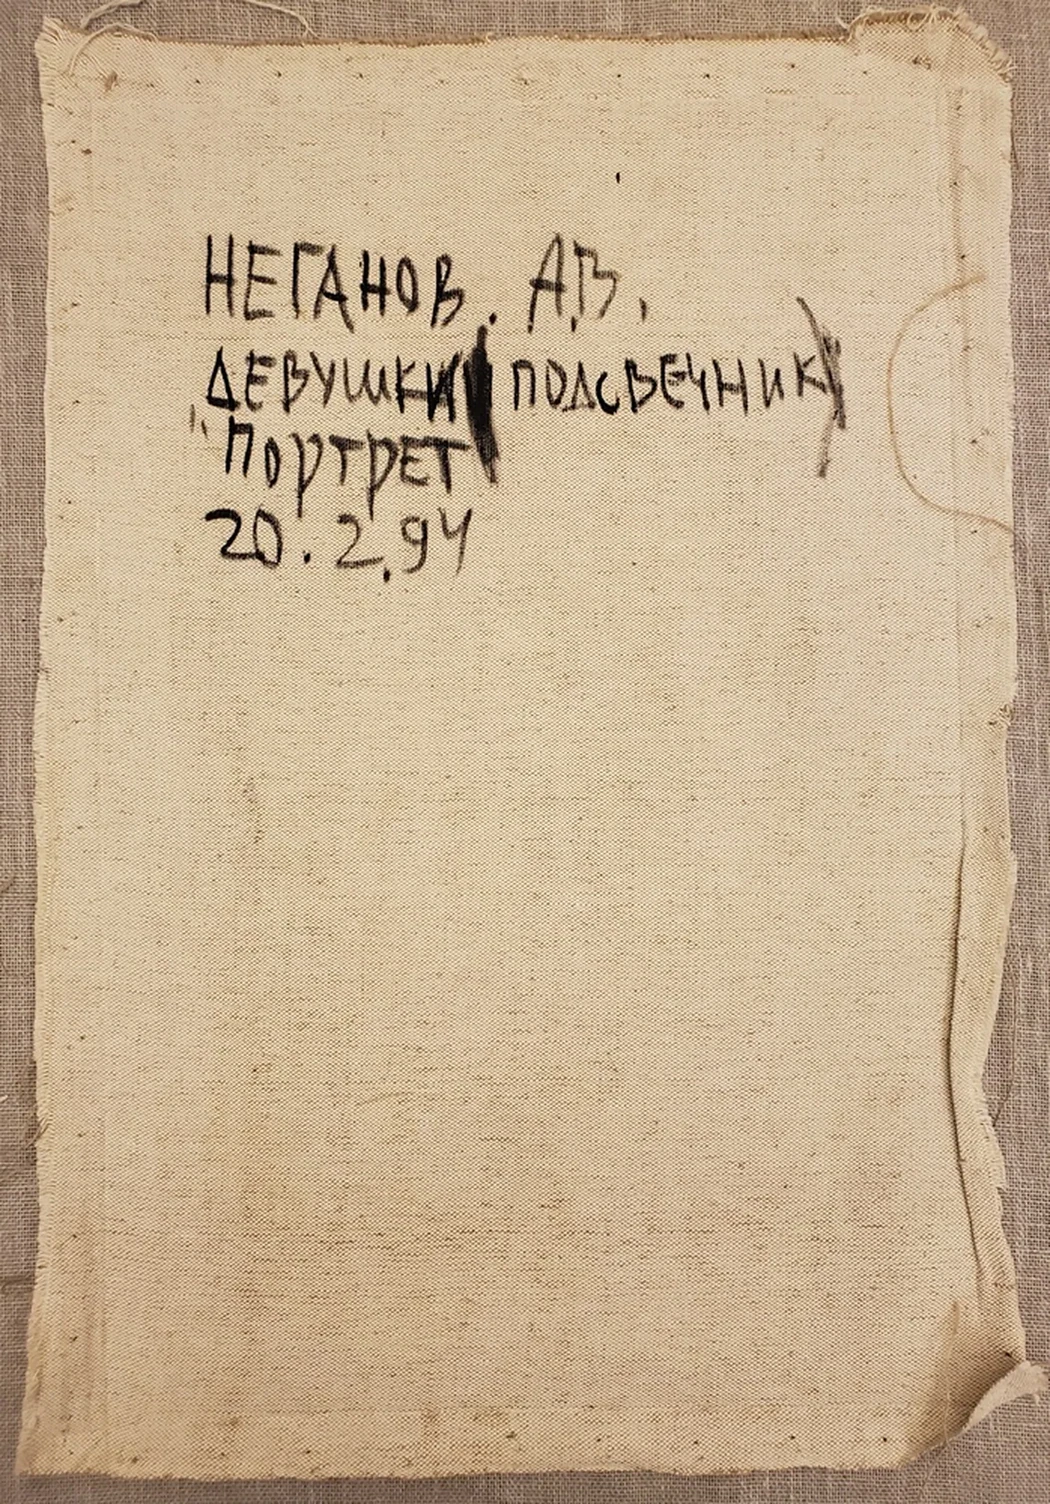 НЕГАНОВ. А.В.
ДЕВУШКИ (ПОДСВЕЧНИК)
"ПОРТРЕТ
20.2.94